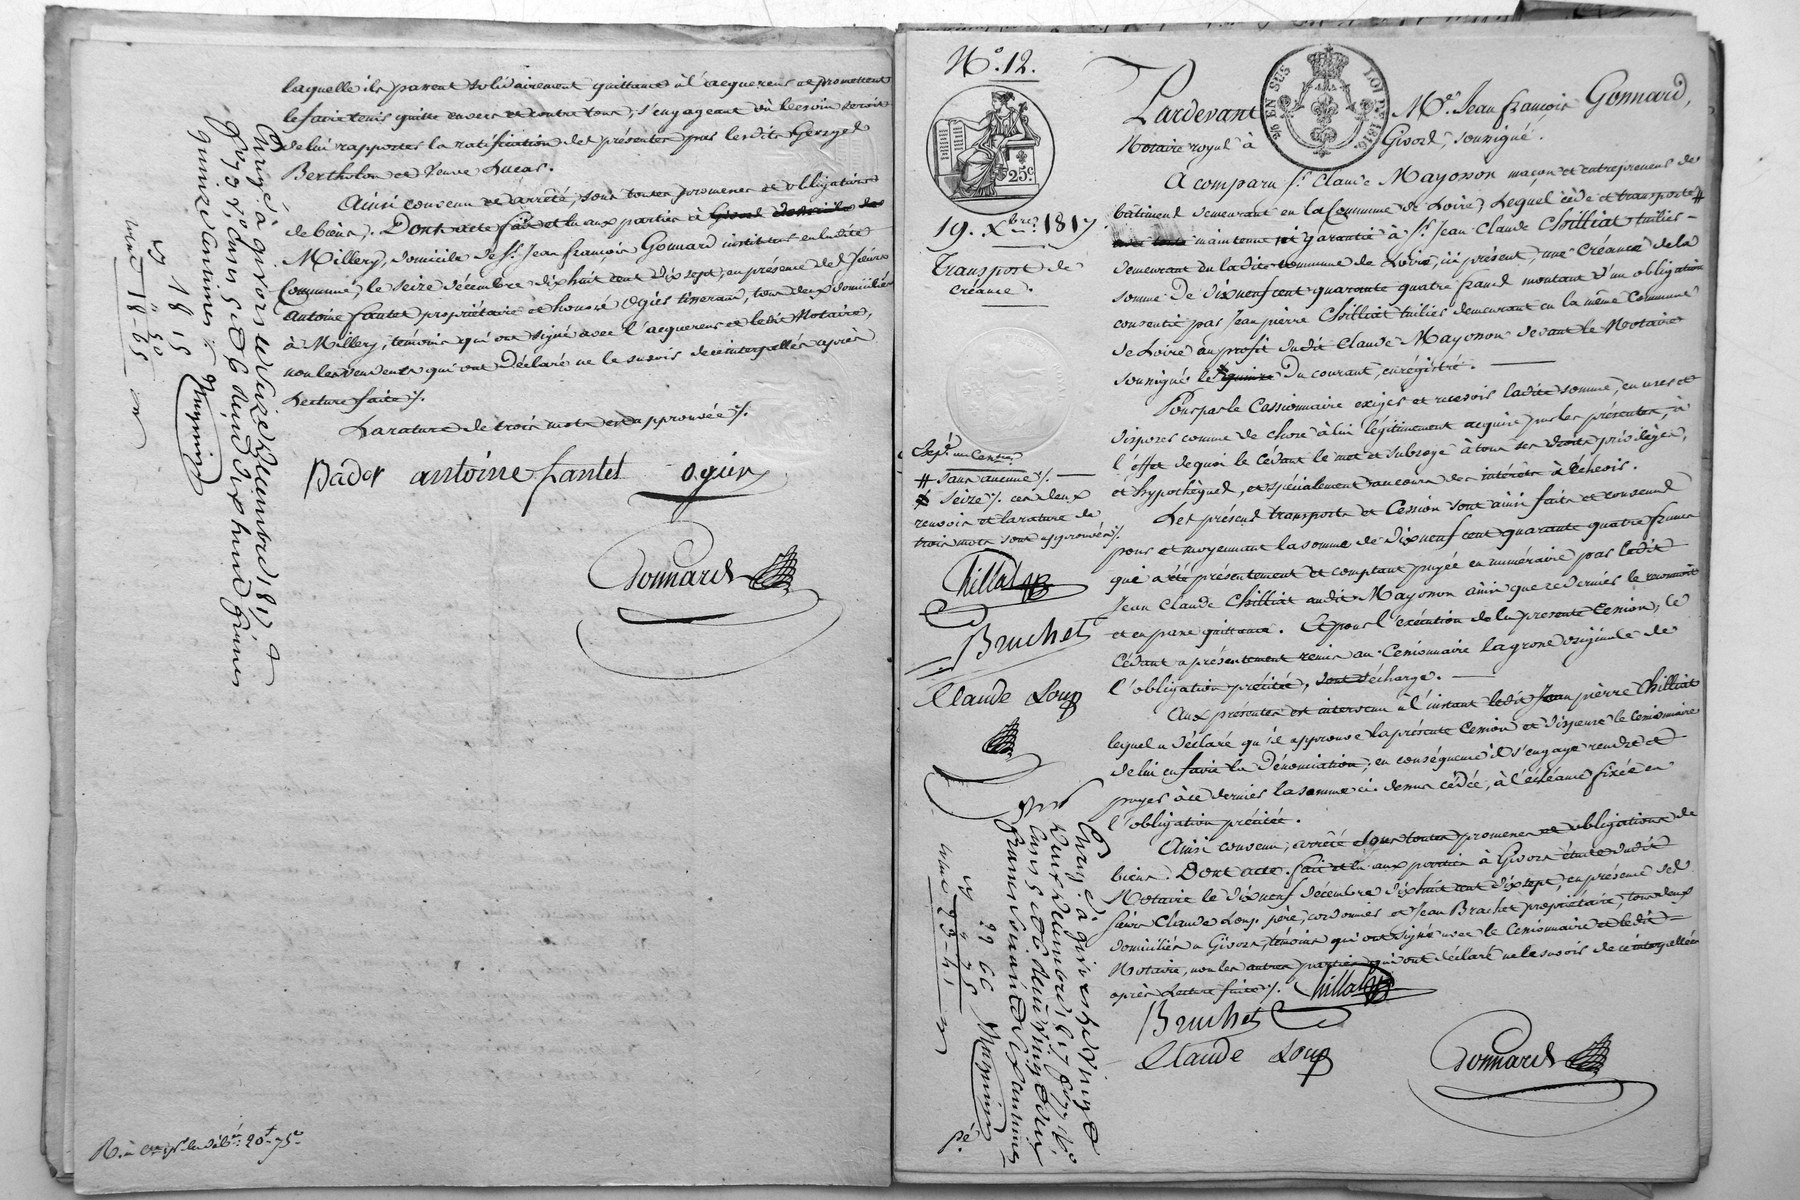 laquelle ils passent solidairement quittance à l'acquereur et promettent
le faire tenir quitte envers et contre tous, s'engageant où besoin seroit
de lui rapporter la ratification des présentes par lesdits
Bertholon et veuve Lucas.
Ainsi convenu et arrêté, sous toutes promesses et obligations
de biens. Dont acte fait et lu aux parties à Givors
Millery, domicile de Sr. Jean françois Gonnard en ladite
Commune, le seize décembre dix huit cent dix sept, en présence des sieurs
antoine fantet propriétaire et honoré Ogier tisserand, tous deux domiciliés
à Millery, temoins qui ont signé avec l'acquereur et ledit Notaire,
non les vendeurs qui ont Déclaré ne le savoir de ce interpellés après
Lecture faite ./.
La rature de trois mots est approuvée ./.
Bador antoine fantet ogier
Gonnard
Enrgé à givors le seize décembre 1817
quinze centimes
Magnin
18 15
18-65
20f 75c
No. 12.
25c.
19. Xbre. 1817
Transport de
créance.
EN SUS
LOI DE 1816.
Pardevant Me. Jean françois Gonnard,
Notaire royal à Givors, soussigné.
A comparu sr. Claude Mayosson maçon et entrepreneur de
bâtiment demeurant en la Commune de Loire, Lequel cède et transporte #
maintenue et garantie à sr. Jean Claude Chilliat tuilier
demeurant en ladite Commune de Loire, ici présent, une Créance de la
somme De dixneuf cent quarante quatre francs montant d'un obligation
consentie par Jean pierre Chilliat tuilier demeurant en la même Commune
de Loire au profit dudit Claude Mayosson devant le Notaire
soussigné le quinze Du courant, enrégistré.
Pour par le Cessionnaire exiger et recevoir ladite somme, en user et
disposer comme de chose à lui légitimement acquise par les présentes, à
l'effet de quoi le Cédant le met et subroge à tous ses droits privilèges,
et hypothèques, et spécialement au cours des intérêts à échoir.
Les présens transports et Cession sont ainsi faits et convenus
pour et moyennant la somme de dixneuf cent quarante quatre francs
que a été présentement et comptant payée en numéraire par ledit
Jean Claude Chilliat audit Mayosson ainsi que ce dernier le reconnoit
et en passe quittance. Et pour l'exécution de la présente Cession, le
Cédant a présentement remis au Cessionnaire la grosse originale de
l'obligation précitée, dont décharge.
Aux présentes est intervenu à l'instant ledit Jean pierre Chilliat
lequel a déclaré qu'il approuve la présente Cession et dispense le Cessionnaire
de lui en faire la Dénonciation; en conséquence il s'engage rendre et
payer à ce dernier la somme ci-dessus cédée, à l'échéance fixée en
l'obligation précitée.
Ainsi convenu, arrêté sous toutes promesses et obligations de
biens. Dont acte fait et lu aux parties à Givors étude dudit
Notaire le dixneuf décembre dixhuit cent dixsept, en présence des
sieurs Claude Loup père, cordonnier et Jean Brachet propriétaire, tous deux
domiciliés à Givors, témoins qui ont signé avec le Cessionnaire et ledit
Notaire, non les autres parties qui ont déclaré ne le savoir de ce interpellées
après Lecture faite ./. Chillat
Bruchet
Claude Loup
Gonnard
# sans aucune ./.
# seize ./. ces deux
renvois et la rature de
trois mots sont approuvés ./.
Chillat
Bruchet
Claude Loup
Enrgé à givors le vingt
deux décembre 1817
22 66
23-41
Magnin